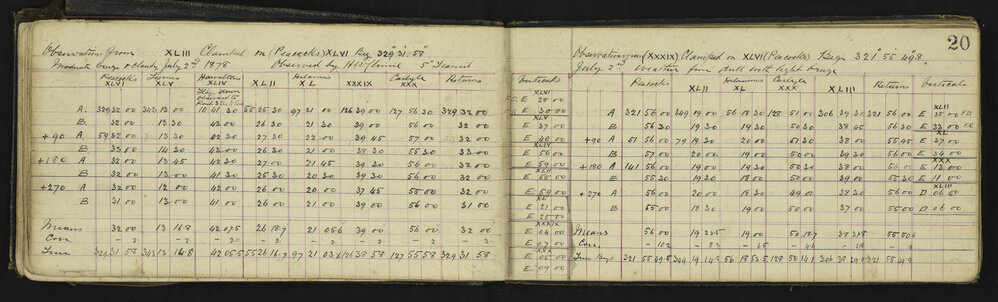 Observations from XLIII Clamped on (Peacocks) XLVI Bg 329° 31' 58"
Moderate breeze & cloudy July 2nd 1878 Observed by 5" Transit
Peacock's Hamiltons Adamin's Carlyle Returns Verticals
XLVI XLV XLIV XLII XLI XXXIX XXX
A. 329 32 00 343 13 00 10 41 30 55 26 30 97 21 00 126 39 00 127 56 30 329 32 00
B. 32 00 13 30 42 00 26 30 21 30 39 00 56 00 32 00
+90 A. 59 32 00 13 30 42 30 27 30 22 00 39 45 57 00 32 00
B. 33 00 14 30 43 00 26 30 21 00 38 30 55 30 33 00
+180 A 32 00 13 45 42 30 27 00 21 45 39 30 56 00 32 00
B 32 00 13 00 41 30 25 30 20 30 39 30 56 00 32 00
+270 A 32 00 12 00 42 00 26 00 20 00 37 45 55 00 32 00
B 31 00 13 00 41 00 26 00 21 00 39 00 56 00 31 00
Means 32 00 13 16.8 42 07.5 26 18.7 21 05.6 39 00 56 00 32 00
Corr - 2 - 2 - 2 - 2 - 2 - 2 - 2 - 2
True 329 31 58 343 13 14.8 42 05.5 55 26 16.7 97 21 03.6 126 38 58 127 55 58 329 31 58
XLVI
E 28 00
E 30 00
XLV
E 37 00
E 40 00
XLIV
E 56 00
E 59 00
E 55 00
E 59 00
XLI
E 21 00
E 25 00
XXXIX
E 04 00
E 07 00
E 05 00
E 09 00
20
Observations from (XXXIX) Clamped on XLVI (Peacocks) Brgs 321° 55' 49.8
July 2nd Weather fine dull with light breeze
Peacocks Adamin's Carlyle Returns Vertical
XLII XLI XXX XLIII
A 321 56 00 349 19 00 56 18 30 128 51 00 306 39 30 321 56 00
B 56 30 19 30 19 30 50 30 38 45 56 30
+90 A 51 56 00 79 19 30 20 00 51 30 38 00 55 45
B 57 00 20 00 19 00 50 00 39 30 56 00
+180 A 141 56 00 20 00 19 30 50 00 38 30 56 00
B 55 30 19 30 18 00 50 00 39 00 55 30
+270 A 56 00 20 00 18 30 49 00 38 30 56 00
B 55 00 18 30 19 00 50 00 37 00 55 00
Means 56 00 19 22.5 19 00 50 18.7 38 31.8 55 50.6
Corr. - 10.2
True Brgs 321 55 49.8 349 19
XLII
E 35 00
E 33 00
XL
E 37 00
E 34 00
XXX
E 13 00
E 11 00
XLIII
D 06 00
D 06 00